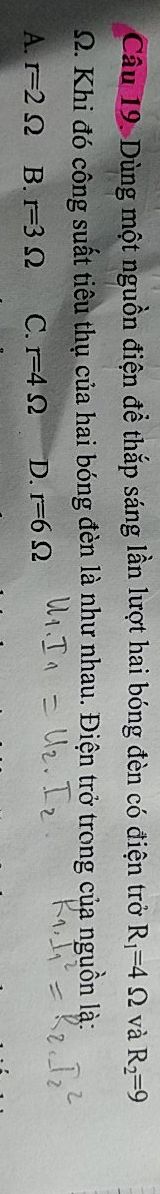 Câu 19. Dùng một nguồn điện để thắp sáng lần lượt hai bóng đèn có điện trở R₁=4 Ω và R₂=9
Ω. Khi đó công suất tiêu thụ của hai bóng đèn là như nhau. Điện trở trong của nguồn là:
A. r=2 Ω B. r=3 Ω C. r=4 Ω D. r=6 Ω
U₁.I₁ = U₂.I₂.
R₁.I₁² = R₂.I₂²